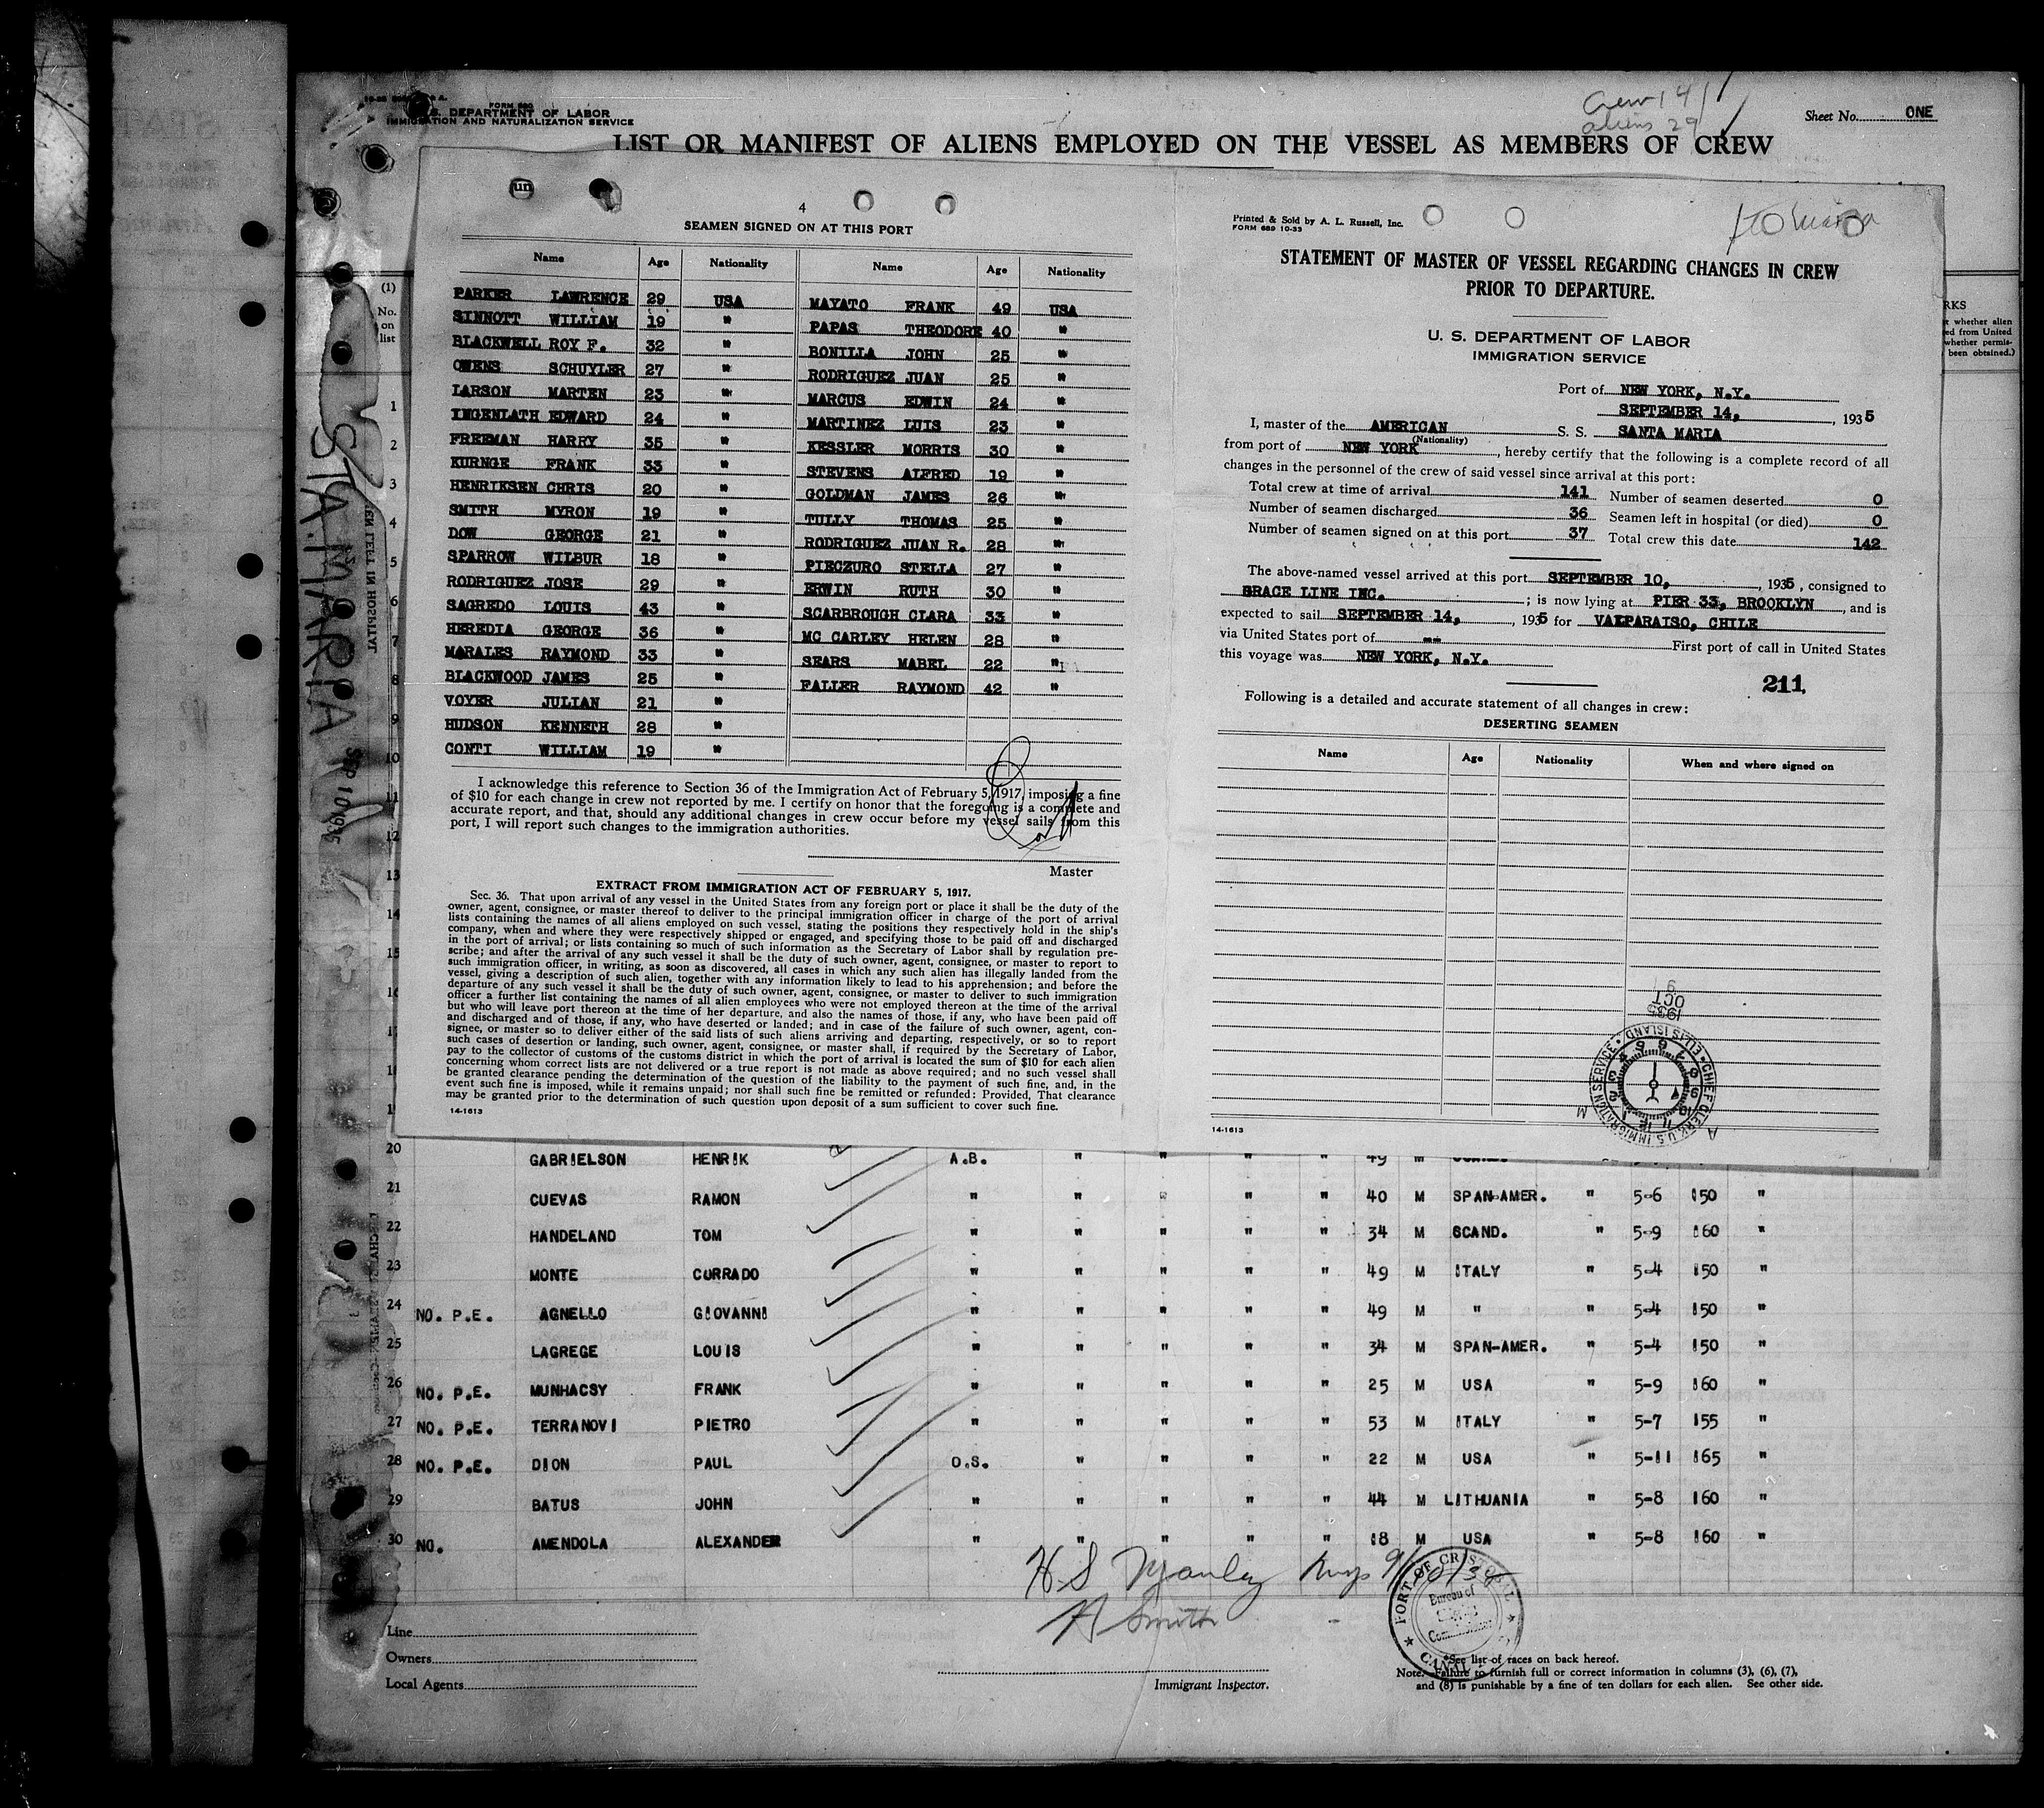 FORM 680
U.S. DEPARTMENT OF LABOR
IMMIGRATION AND NATURALIZATION SERVICE
Crew 141
aliens 29
Sheet No. ONE
LIST OR MANIFEST OF ALIENS EMPLOYED ON THE VESSEL AS MEMBERS OF CREW
4
SEAMEN SIGNED ON AT THIS PORT
Name Age Nationality Name Age Nationality
PARKER LAWRENCE 29 USA MAYATO FRANK 49 USA
SINNOTT WILLIAM 19 " PAPAS THEODORE 40 "
BLACKWELL ROY F. 32 " BONILLA JOHN 25 "
OWENS SCHUYLER 27 " RODRIGUEZ JUAN 25 "
LARSON MARTEN 23 " MARCUS EDWIN 24 "
INGENLATH EDWARD 24 " MARTINEZ LUIS 23 "
FREEMAN HARRY 35 " KESSLER MORRIS 30 "
KURNGE FRANK 33 " STEVENS ALFRED 19 "
HENRIKSEN CHRIS 20 " GOLDMAN JAMES 26 "
SMITH MYRON 19 " TULLY THOMAS 25 "
DOW GEORGE 21 " RODRIGUEZ JUAN R. 28 "
SPARROW WILBUR 18 " PIECZURO STELLA 27 "
RODRIGUEZ JOSE 29 " ERWIN RUTH 30 "
SAGREDO LOUIS 43 " SCARBROUGH CLARA 33 "
HEREDIA GEORGE 36 " MC CARLEY HELEN 28 "
MORALES RAYMOND 33 " SEARS MABEL 22 "
BLACKWOOD JAMES 25 " FALLER RAYMOND 42 "
VOYER JULIAN 21 "
HUDSON KENNETH 28 "
CONTI WILLIAM 19 "
I acknowledge this reference to Section 36 of the Immigration Act of February 5, 1917, imposing a fine
of $10 for each change in crew not reported by me. I certify on honor that the foregoing is a complete and
accurate report, and that, should any additional changes in crew occur before my vessel sails from this
port, I will report such changes to the immigration authorities.
Master
EXTRACT FROM IMMIGRATION ACT OF FEBRUARY 5, 1917.
Sec. 36. That upon arrival of any vessel in the United States from any foreign port or place it shall be the duty of the
owner, agent, consignee, or master thereof to deliver to the principal immigration officer in charge of the port of arrival
lists containing the names of all aliens employed on such vessel, stating the positions they respectively hold in the ship's
company, when and where they were respectively shipped or engaged, and specifying those to be paid off and discharged
in the port of arrival; or lists containing so much of such information as the Secretary of Labor shall by regulation pre-
scribe; and after the arrival of any such vessel it shall be the duty of such owner, agent, consignee, or master to report to
such immigration officer, in writing, as soon as discovered, all cases in which any such alien has illegally landed from the
vessel, giving a description of such alien, together with any information likely to lead to his apprehension; and before the
departure of any such vessel it shall be the duty of such owner, agent, consignee, or master to deliver to such immigration
officer a further list containing the names of all alien employees who were not employed thereon at the time of the arrival
but who will leave port thereon at the time of her departure, and also the names of those, if any, who have been paid off
and discharged and of those, if any, who have deserted or landed; and in case of the failure of such owner, agent, con-
signee, or master so to deliver either of the said lists of such aliens arriving and departing, respectively, or so to report
such cases of desertion or landing, such owner, agent, consignee, or master shall, if required by the Secretary of Labor,
pay to the collector of customs of the customs district in which the port of arrival is located the sum of $10 for each alien
concerning whom correct lists are not delivered or a true report is not made as above required; and no such vessel shall
be granted clearance pending the determination of the question of the liability to the payment of such fine, and, in the
event such fine is imposed, while it remains unpaid; nor shall such fine be remitted or refunded: Provided, That clearance
may be granted prior to the determination of such question upon deposit of a sum sufficient to cover such fine.
14-1613
Printed & Sold by A. L. Russell, Inc.
FORM 689 10-33
STATEMENT OF MASTER OF VESSEL REGARDING CHANGES IN CREW
PRIOR TO DEPARTURE.
U. S. DEPARTMENT OF LABOR
IMMIGRATION SERVICE
Port of NEW YORK, N.Y.
SEPTEMBER 14, 1935
I, master of the AMERICAN S. S. SANTA MARIA
(Nationality)
from port of NEW YORK, hereby certify that the following is a complete record of all
changes in the personnel of the crew of said vessel since arrival at this port:
Total crew at time of arrival 141 Number of seamen deserted 0
Number of seamen discharged 36 Seamen left in hospital (or died) 0
Number of seamen signed on at this port 37 Total crew this date 142
The above-named vessel arrived at this port SEPTEMBER 10, 1935, consigned to
GRACE LINE INC.; is now lying at PIER 33, BROOKLYN, and is
expected to sail SEPTEMBER 14, 1935 for VALPARAISO, CHILE
via United States port of -- First port of call in United States
this voyage was NEW YORK, N.Y.
211
Following is a detailed and accurate statement of all changes in crew:
DESERTING SEAMEN
Name Age Nationality When and where signed on
1935
OCT
9
CHIEF CLERK, U.S. IMMIGRATION SERVICE • ELLIS ISLAND •
M A
14-1613
(1)
No.
on
list
RKS
t whether alien
ed from United
whether permis-
been obtained.)
STA. MARIA
SEP 10 1935
EN LEFT IN HOSPITAL
1
2
3
4
5
6
7
8
9
10
11
12
13
14
15
20 GABRIELSON HENRIK A.B. " " " " 49 M
21 CUEVAS RAMON " " " " " 40 M SPAN-AMER. " 5-6 150 "
22 HANDELAND TOM " " " " " 34 M SCAND. " 5-9 160 "
23 MONTE CORRADO " " " " " 49 M ITALY " 5-4 150 "
24 NO. P.E. AGNELLO GIOVANNI " " " " " 49 M " " 5-4 150 "
25 LAGREGE LOUIS " " " " " 34 M SPAN-AMER. " 5-4 150 "
26 NO. P.E. MUNHACSY FRANK " " " " " 25 M USA " 5-9 160 "
27 NO. P.E. TERRANOVI PIETRO " " " " " 53 M ITALY " 5-7 155 "
28 NO. P.E. DION PAUL O.S. " " " " 22 M USA " 5-11 165 "
29 BATUS JOHN " " " " " 44 M LITHUANIA " 5-8 160 "
30 NO. AMENDOLA ALEXANDER " " " " " 18 M USA " 5-8 160 "
A Smith
PORT OF CRISTOBAL
Bureau of
CANAL
Line
Owners
Local Agents
Immigrant Inspector.
*See list of races on back hereof.
Note. Failure to furnish full or correct information in columns (3), (6), (7),
and (8) is punishable by a fine of ten dollars for each alien. See other side.